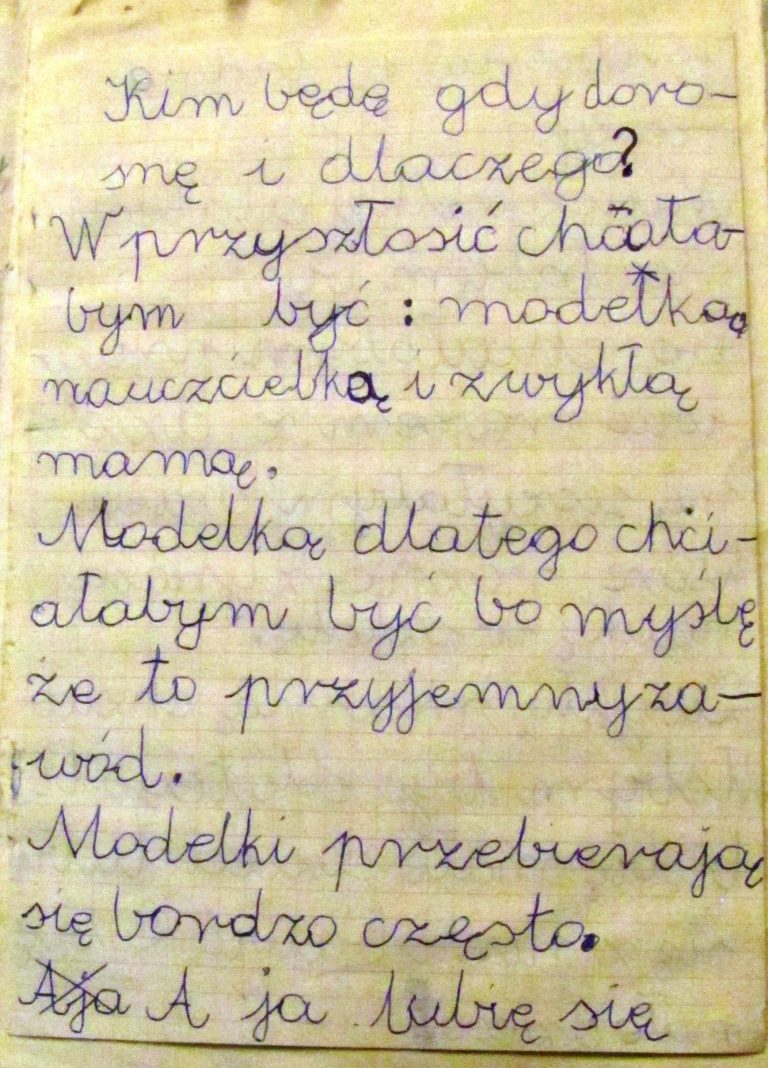 Kim będę gdy doro-
snę i dlaczego?
W przyszłosić chciała-
bym być: modelką
nauczcielką i zwykłą
mamą.
Modelką dlatego chci-
ałabym być bo myślę
że to przyjemny za-
wód.
Modelki przebierają
się bardzo często.
Aja A ja lubię się